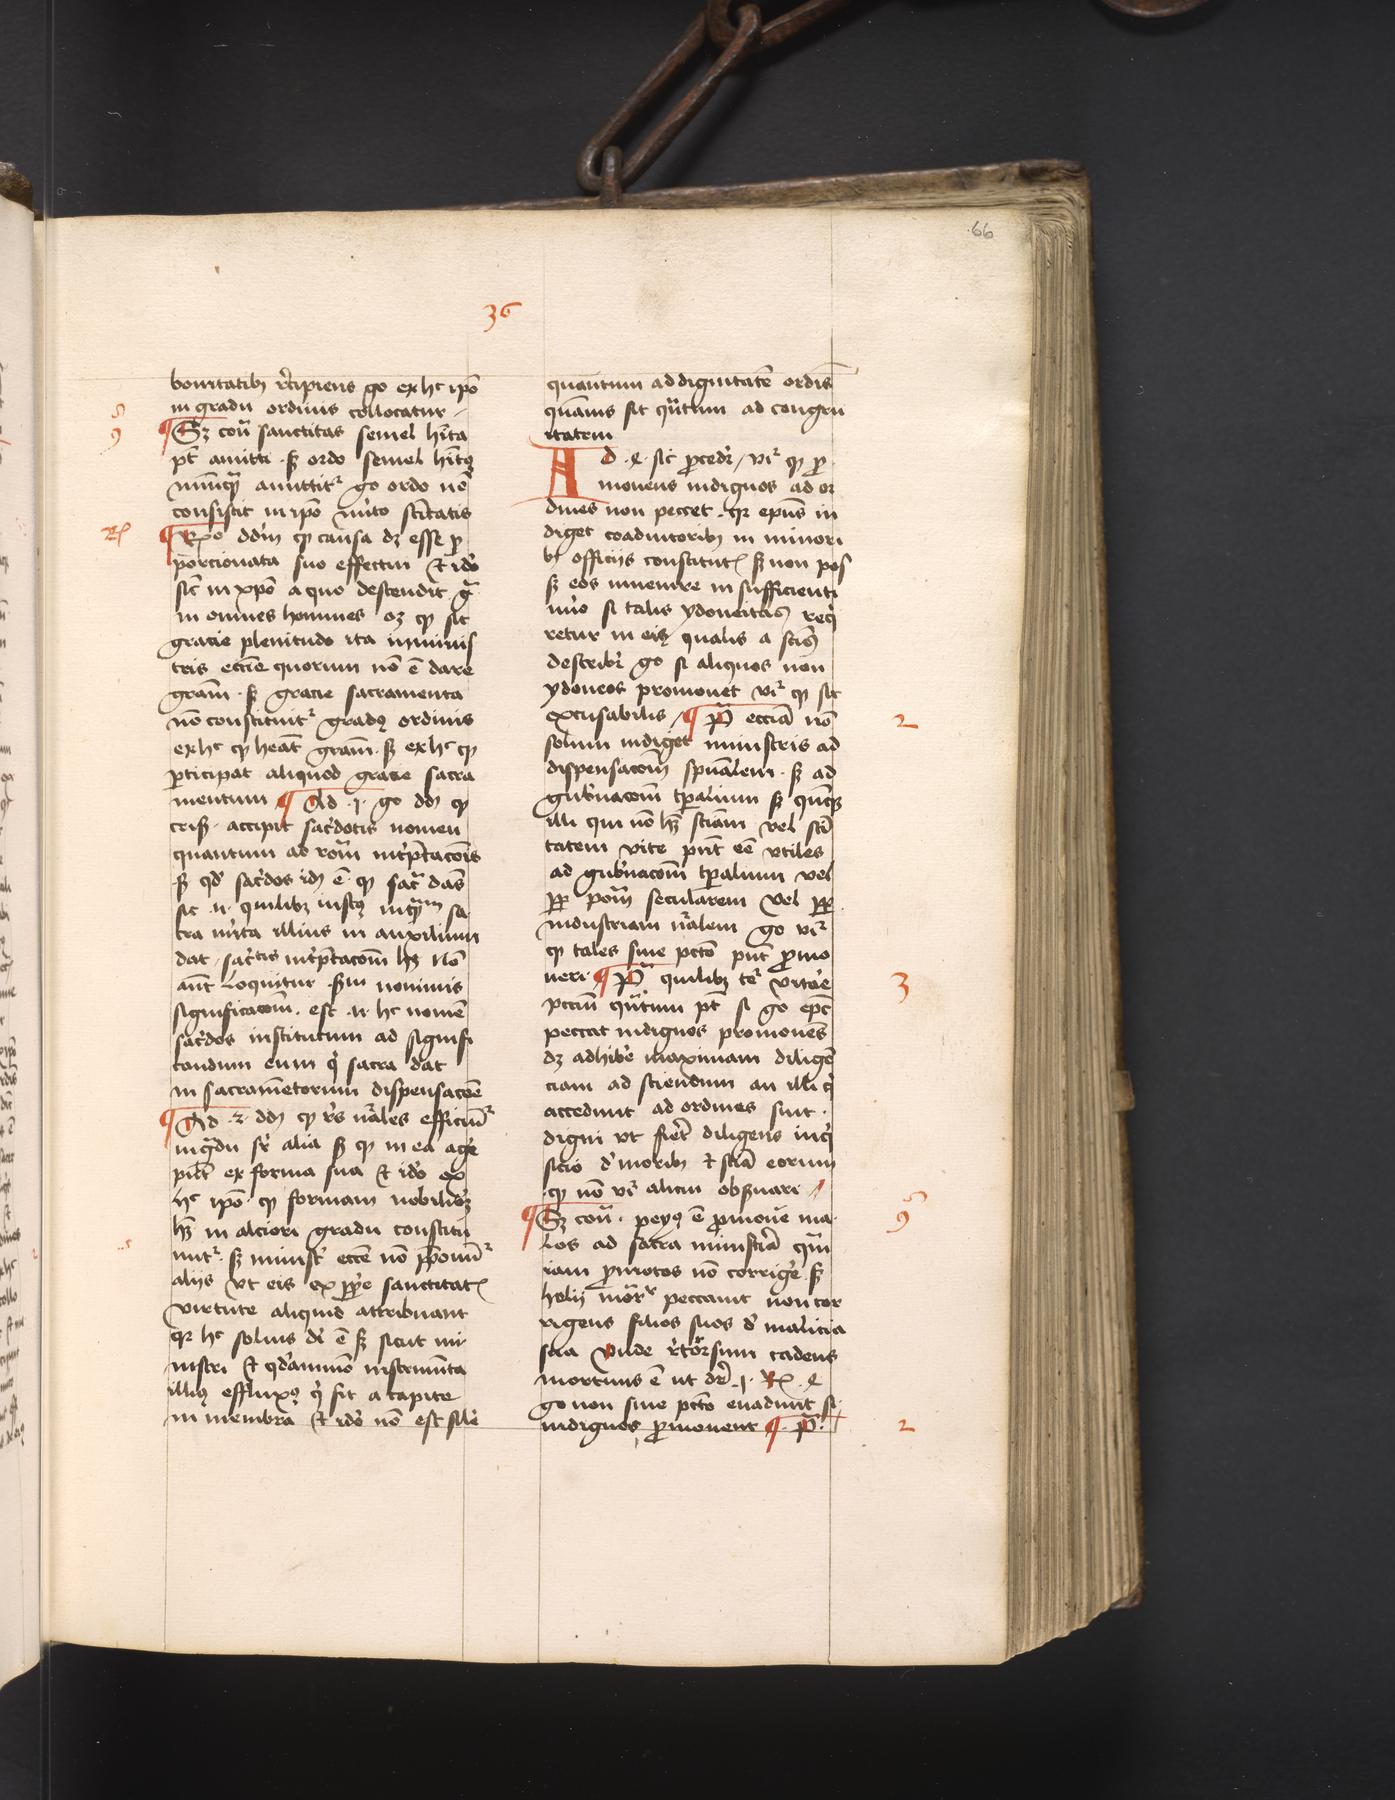 66
36
bonitatib recipiens go ex hc ipo
in gradu ordinis collocatur
Sz cou sanctitas semel hita
pt amitti sz ordo semel hitus
nunqz amittitr go ordo no
consistit in ipo mito scitatis
Rx
Rndo ddm qp causa dz esse p
porcionata suo effectui et ido
sic in xpo a quo descendit gra
in omnes homines oz qp sit
gracie plenitudo ita in minis
tris eccie quorum no e dare
gram sz gracie sacramenta
no constituitr gradus ordinis
ex hc qp heat gram sz ex hc qp
pticipat aliquod gracie sacra
mentum Ad .1. go dm qp
crisz accipit sacdotis nomen
quantum ad rom intptacois
sz qd sacdos idm e qp sacra dans
sic .n. quilibz iustus inqtum sa
cra mita illius in auxilium
dat sacdtis intptacom hz No
aut loquitur scdm nominis
significacom est .n. hc nomen
sacdos institutum ad signifi
candum eum qi sacra dat
in sacrametorum dispensacoe
Ad .2. ddm qp res nrales efficiutr
in gradu sr alia sz qp in ea age
pnt ex forma sua et ido ex
hc ipo qp formam nobilioz
hnt in alciori gradu constitu
utr sz ministri eccie no pponutr
aliis vt eis ex ppe sanctitatis
virtute aliquid attribuant
qr hc solius di e sz sicut mi
nistri et qdammo instrumta
illius effluxus qi fit a capite
in membra et ido no est sile
quantum ad dignitate ordis
quamis sit qtum ad congru
itatem
Ad .4. sic pceditr vir qp p
movens indignos ad or
dines non peccet qr epus in
diget coadiutorib in minori
bz officiis constitutis sz non pos
sz eos invenire in sufficienti
nuo si talis ydoneitas requi
retur in eis qualis a sctis
describitr go si aliquos non
ydoneos promovet vir qp sit
excusabilis P eccia no
2
solum indiget ministris ad
dispensacom spualem sz ad
gubnacom tpalium sz qnqz
illi qui no hnt sciam vel sci
tatem vite pnt ee vtiles
ad gubnacom tpalium vel
pp potm secularem vel pp
industriam nralem go vir
qp tales sine pcto pnt pmo
veri P quilibz ter vitae
3
pccm qtum pt si go epc
peccat indignos promovens
dz adhibe maximam diligen
ciam ad sciendum an illi qi
accedunt ad ordines sint
digni vt fiet diligens inqui
sicio d morib et scia eorum
qp no vir alicui obsvari
Sz cou peyus e pmove ma
los ad sacra ministia qm
iam pmotos no corrige sz
hely mortr peccavit non cor
rigens filios suos d malicia
sua Unde retrorsum cadens
mortuus e ut dr .1. R .4.
go non sine pcto evadunt si
indignos pmovent P
2